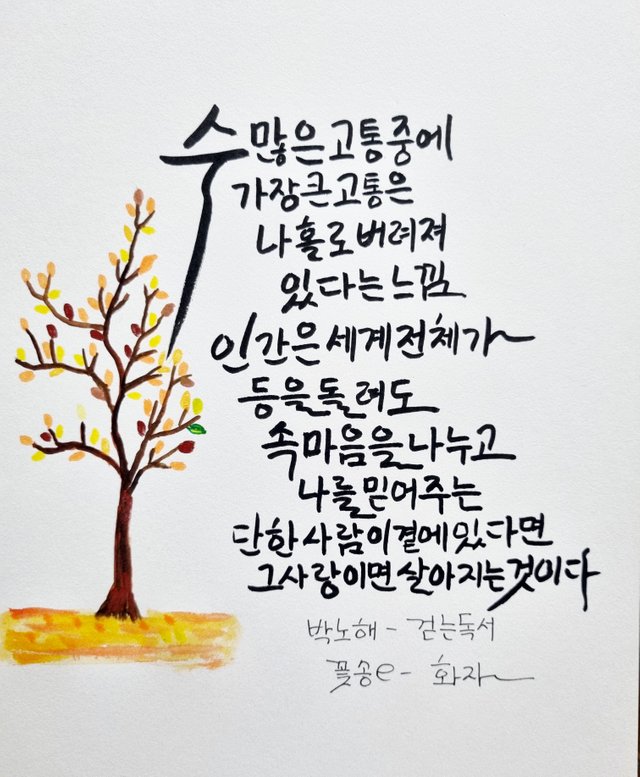 수많은 고통 중에
가장 큰 고통은
나 홀로 버려져
있다는 느낌
인간은 세계 전체가
등을 돌려도
속마음을 나누고
나를 믿어주는
단 한 사람이 곁에 있다면
그 사랑이면 살아지는 것이다
박노해 - 걷는독서
꽃송e - 화자